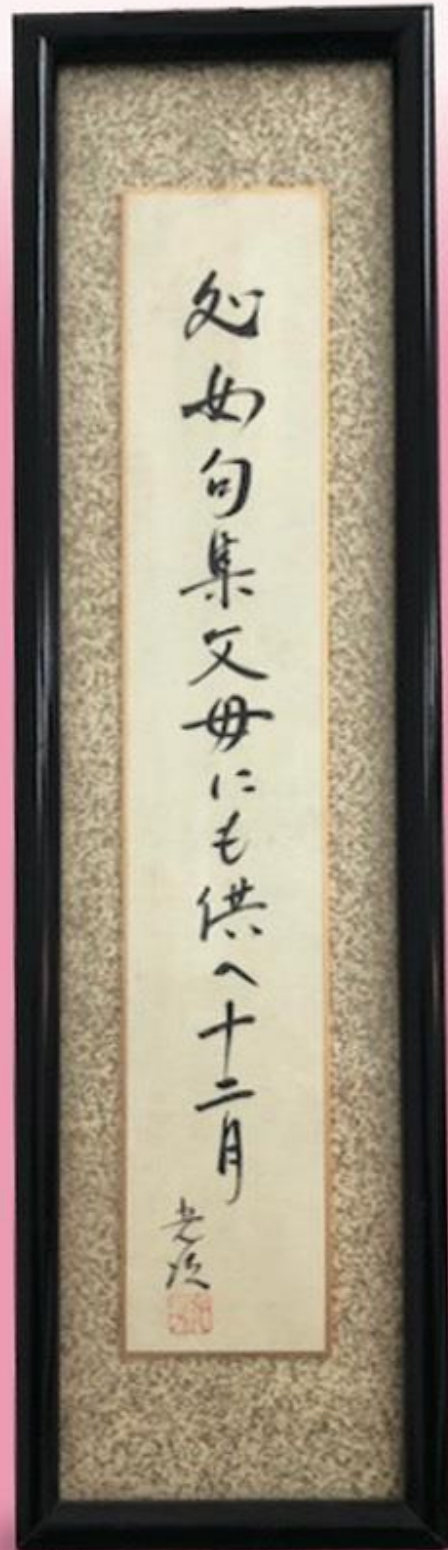 処女句集父母にも供へ十二月